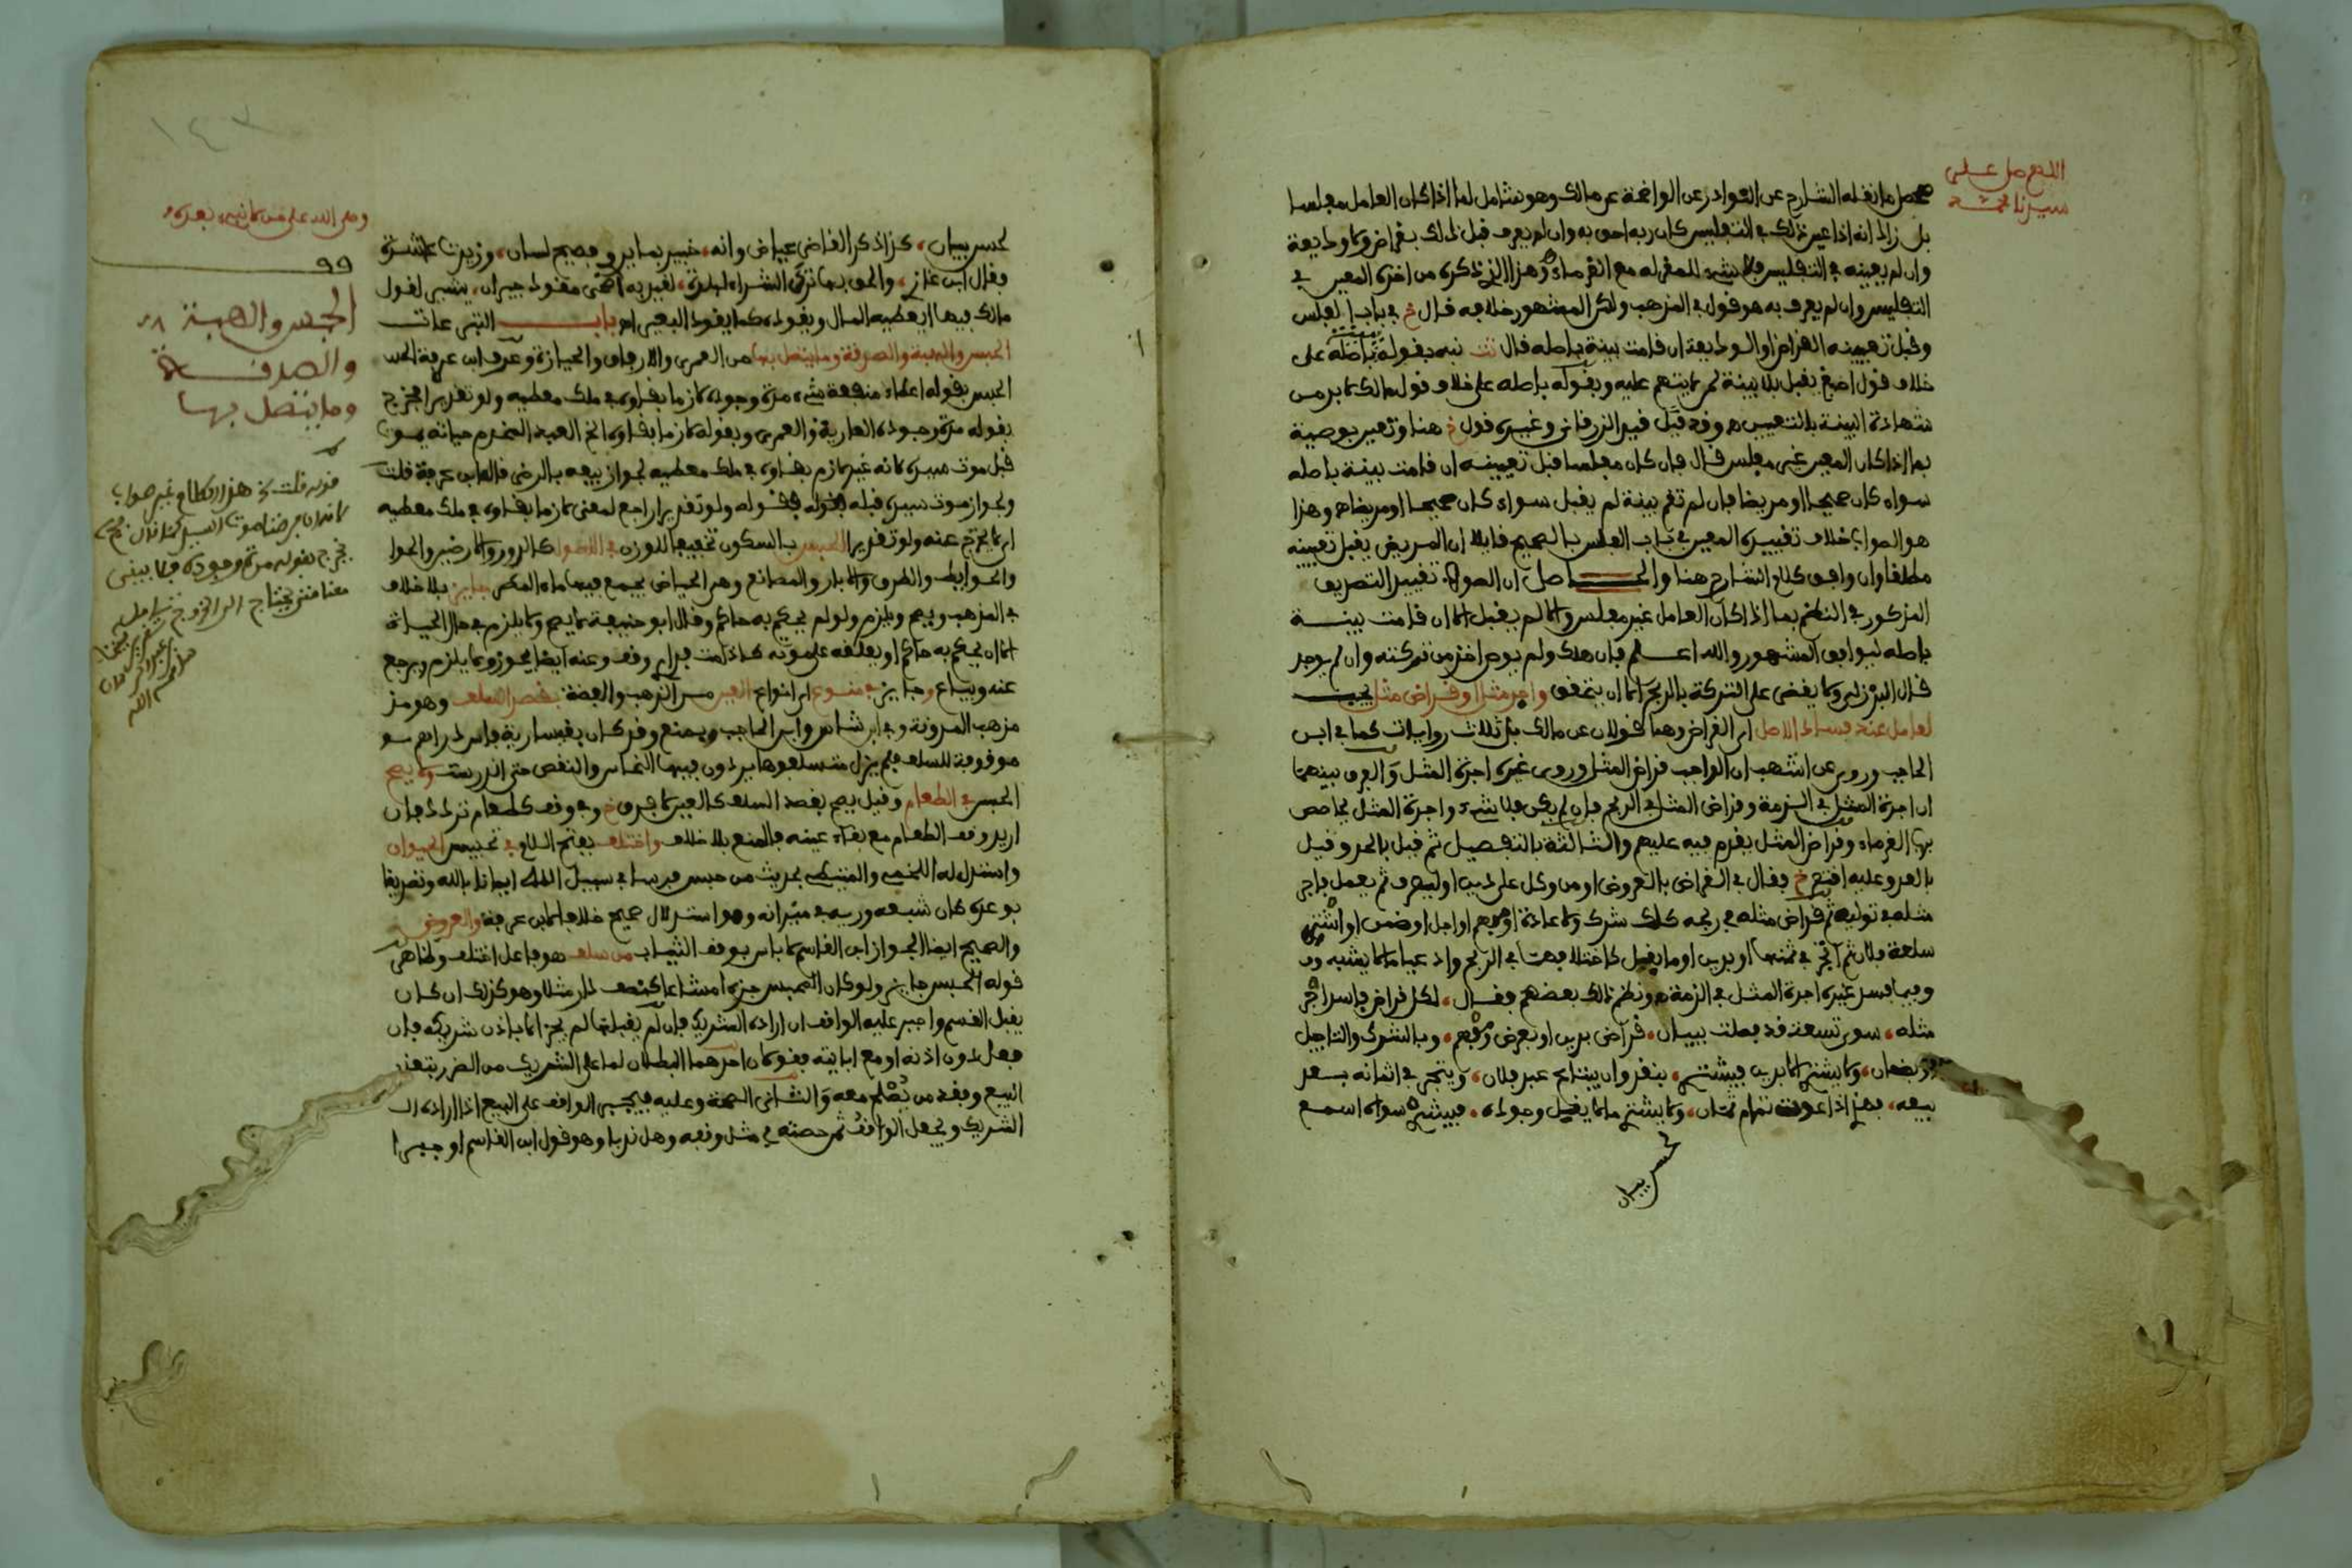 اللهم صل على
سيدنا محمد
محصل ما نقله الشارح عن النوادر عن الواضحة عن مالك وهو شامل لما اذا كان العامل مفلسا
بل زاد انه اذا عين ذلك في التفليس كان ربه احق به وان لم يعرف قبل ذلك بقراض ولا وديعة
وان لم يعينه في التفليس فلا شيء للمقر له مع الغرماء وهذا الذي ذكره من اخذه المعين في
التفليس وان لم يعرف به هو قول في المذهب ولكن المشهور خلافه قال خ في باب الفلس
وقبل تعيينه القراض او الوديعة ان قامت بينة باصله قال تت نبه بقوله باصله على
خلاف قول اصبغ يقبل بلا بينة لمن لا يتهم عليه وبقوله باصله على خلاف قول مالك لا بد من
شهادة البينة بالتعيين هـ وقد قيد الزرقاني وغيره قول خ هنا وتعين بوصية
بما اذا كان المعين غير مفلس قال فان كان مفلسا قبل تعيينه ان قامت بينة باصله
سواء كان صحيحا او مريضا فان لم تقم بينة لم يقبل سواء كان صحيحا او مريضا هـ وهذا
هو الصواب خلاف تقييده المعين في باب الفلس بالصحيح قائلا ان المريض يقبل تعيينه
مطلقا وان وافق كلام الشارح هنا والحـاصل ان الصواب تقييد التصديق
المذكور في النظم بما اذا كان العامل غير مفلس والا لم يقبل الا ان قامت بينة
باصله ليوافق المشهور والله اعلم فان هلك ولم يوص اخذ من تركته وان لم يوجد
قال البرزلي ولا يقضى على التركة بالربح الا ان يتحقق واجر مثل او قراض مثل يجب
لعامل عند فساد الاصل اي القراض وهما قولان عن مالك بل ثلاث روايات كما في ابن
الحاجب وروى عن اشهب ان الواجب قراض المثل وروى غيره اجرة المثل والفرق بينهما
ان اجرة المثل في الذمة وقراض المثل في الربح فان لم يكن فلا شيء واجرة المثل يحاصص
بها الغرماء وقراض المثل يقدم فيه عليهم والثالثة بالتفصيل ثم قيل بالحد وقيل
بالعد وعليه افتصر خ فقال في القراض بالعروض او من وكل على دين او ليصرف ثم يعمل فاجر
مثله في توليه ثم قراض مثله في ربحه كلك شرك ولا عادة او مبهم او اجل او ضمن او اشتر
سلعة فلان ثم اتجر في ثمنها او بدين او ما يقل كاختلافهما في الربح وادعيا ما لا يشبه وفي
وفيما فسد غيره اجرة المثل في الذمة هـ ونظم ذلك بعضهم فقال، لكل قراض فاسد اجر
مثله، سوى تسعة قد فصلت ببيان، قراض بدين او بعرض ومبهم، وبالشرك والتاجيل
وبضمان، ولا يشتر الا بدين فيشتري، بنقد وان يبتاع عبد فلان، ويتجر في اثمانه بعد
بيعه، فهذا اذا عدت تمام ثمان، ولا يشتر ما لا يقل وجوده، فيشتري سواه اسمع
لحسن بيان
لحسن بيان، كذا ذكر القاضي عياض وانه، خبير بما يروي فصيح لسان، وزيدت عاشرة
فقال ابن غازي، والحق بها ترك الشراء لبلدة، لغير به اضحى مقود جيران، يشير لقول
مالك فيها ايعطيه المال ويقوده كما يقود البعير اهـ باب التبرعات
الحبس والهبة والصدقة وما يتصل بها من العمرى والارفاق والحيازة وعرف ابن عرفة الحد
الحبس بقوله اعطاء منفعة شيء مدة وجوده لازما بقاؤه في ملك معطيه ولو تقديرا فخرج
بقوله مدة وجوده العارية والعمرى وبقوله لازما بقاؤه الخ العبد المخدم حياته يموت
قبل موت سيده لانه غير لازم بقاؤه في ملك معطيه لجواز بيعه بالرضى قاله ابن عرفة قلت
ولجواز موت سيده قبله وقوله ولو تقديرا راجع لمعنى لازما بقاؤه في ملك معطيه
اي لا يخرج عنه ولو تقديرا الحبس بالسكون تخفيفا للوزن في الاصول كالدور والارضين والحوا
والحوائط والطرق والابار والمصانع وهي الحياض يجمع فيها ماء المطر جايز بلا خلاف
في المذهب ويصح ويلزم ولو لم يحكم به حاكم وقال ابو حنيفة لا يصح ولا يلزم في حال الحياة
الا ان يحكم به حاكم او يعلقه على موته كاذا مت فداري وقف وعنه ايضا يجوز ولا يلزم ويرجع
عنه ويباع وجايز في منوع اي انواع العين من الذهب والفضة بقصد السلف وهو مذ
مذهب المدونة وفي ابن شاس وابن الحاجب ويمنع وقد كان بقيسارية فاس دراهم
موقوفة للسلف فلم يزل متسلفوها يردون فيها النحاس والنقص حتى اندرست ولا يصح
الحبس في الطعام وقيل يصح بقصد السلف كالعين لا فرق خ وفي وقف كطعام تردد فان
اريد وقف الطعام مع بقاء عينه فالمنع بلا خلاف واختلف بفتح اللام في تحبيس الحيوان
واستدل له اللخمي والمتيطي بحديث من حبس فرسا في سبيل الله ايمانا بالله وتصديقا
بوعده كان شبعه وريه في ميزانه وهو استدلال صحيح خلافا لابن عرفة والعروض
والصحيح ايضا الجواز ابن القاسم لا باس بوقف الثياب من سلف هو فاعل اختلف ولما هي
قوله الحبس جايز ولو كان المحبس جزءا مشاعا كنصف دار مثلا وهو كذلك ان كان
يقبل القسم واجبر عليه الواقف ان اراده الشريك فان لم يقبلها لم يجز الا باذن شريكه فان
فعل بدون اذنه او مع ابايته فقولان احدهما البطلان لما على الشريك من الضرر بتعذر
البيع وفقد من يصلح معه والثاني الصحة وعليه فيجبر الواقف على البيع اذا اراده
الشريك ويجعل الواقف ثمن حصته في مثل وقفه وهل ندبا وهو قول ابن القاسم او جبرا
وصلى الله على من لا نبي بعده
٩٩
الحبس والهبة
والصدقة
وما يتصل بها
قوله قلت هذا الكلام غير صواب
يخرج بقوله مدة وجوده فلا يبقى